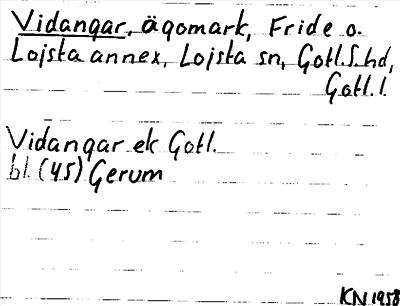 Vidangar, ägomark, Fride o.
Lojsta annex, Lojsta sn, Gotl.S.hd,
Gotl.l.
Vidangar ek Gotl.
bl. (45) Gerum
KN 1958